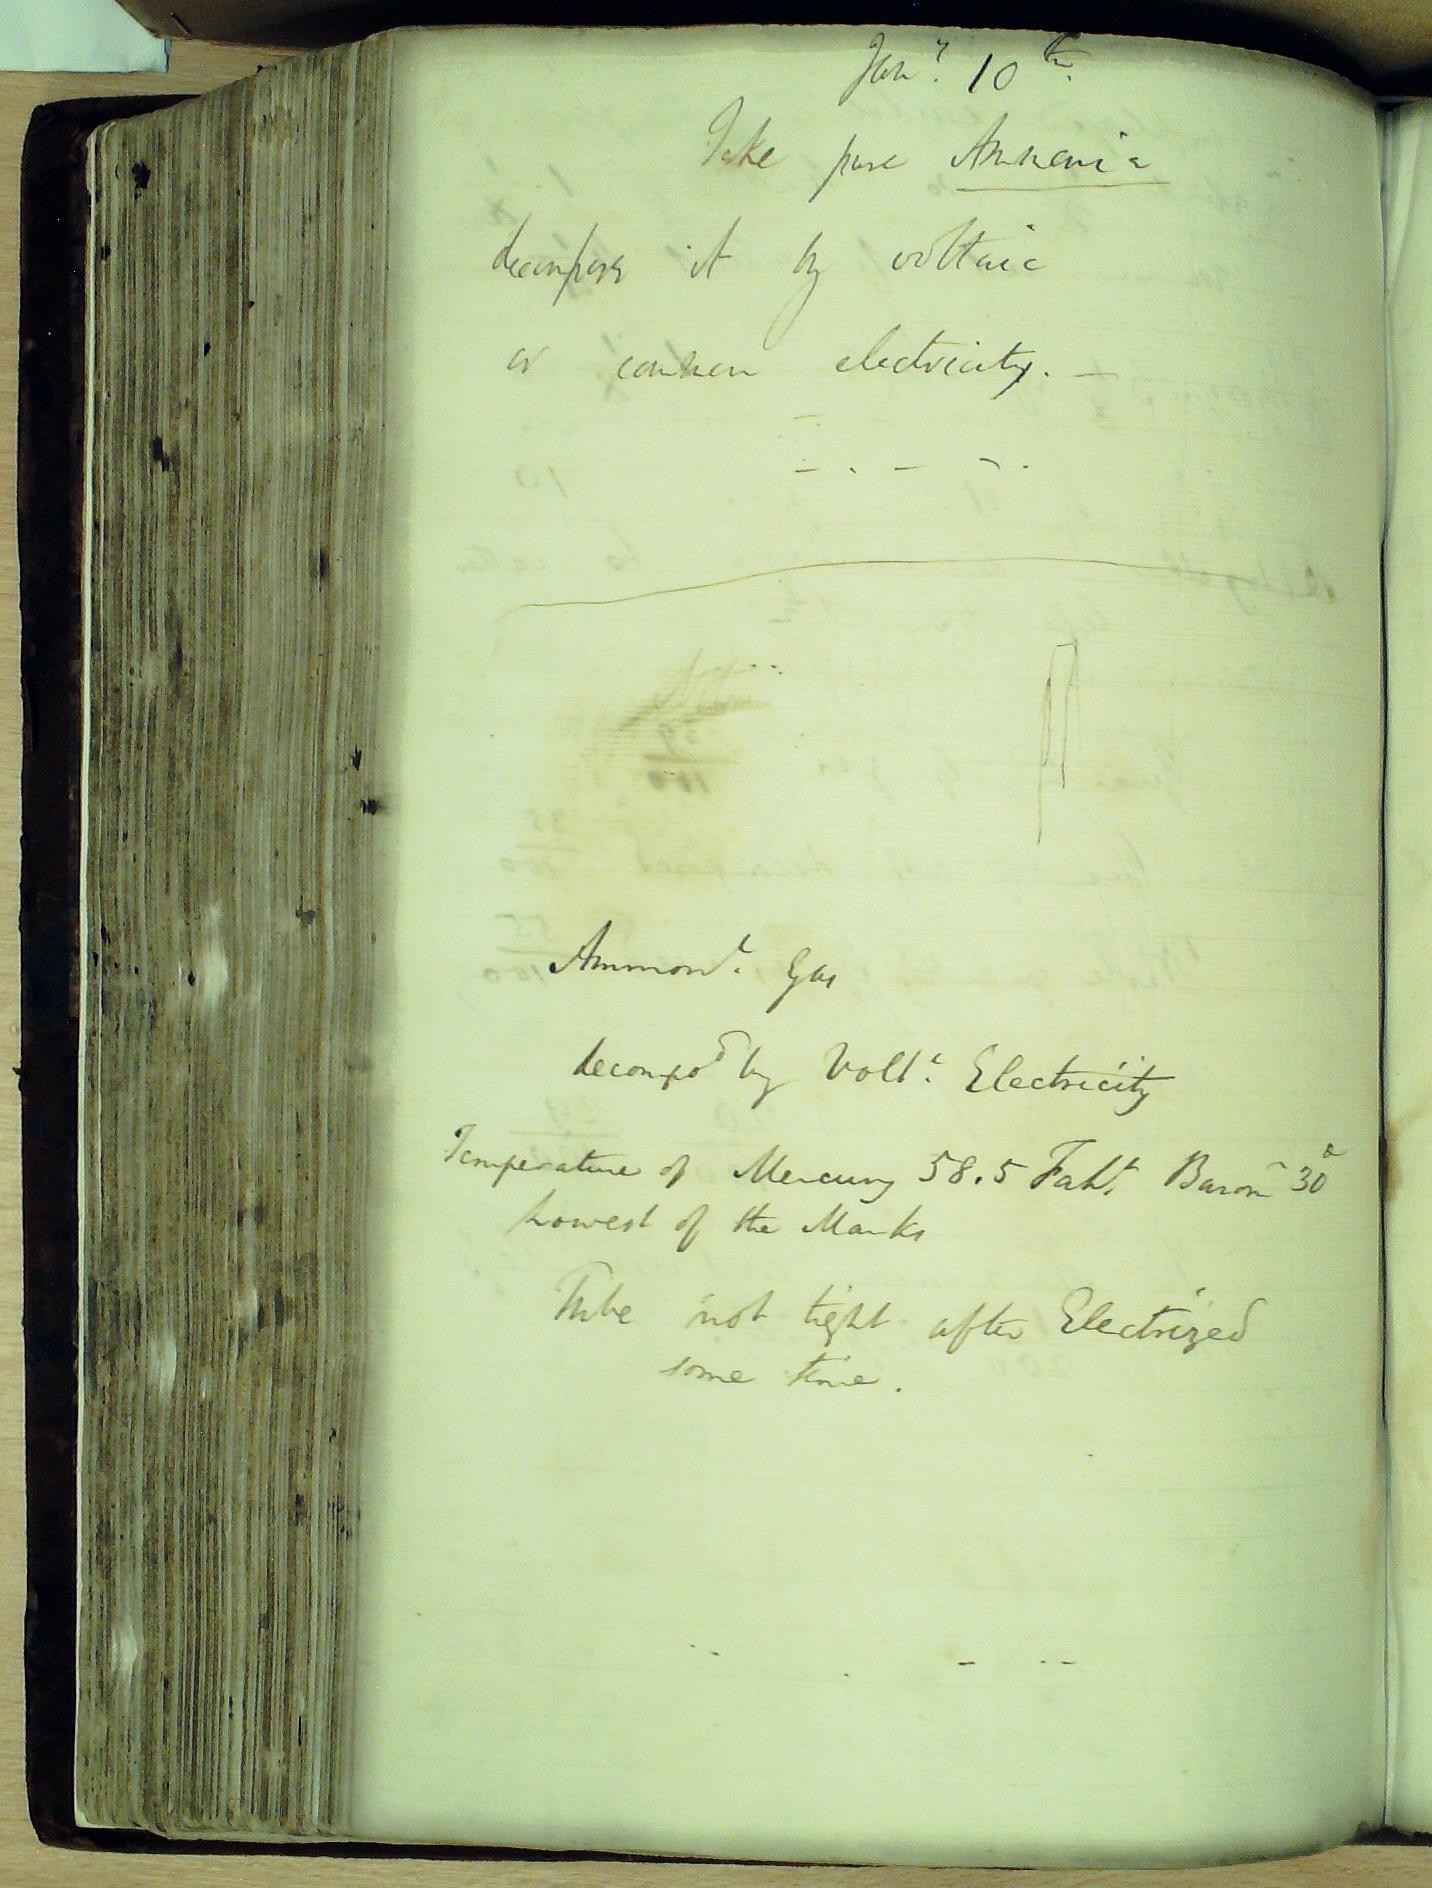 Jany. 10th.
Take pure Ammonia
decompose it by voltaic
or common electricity. —
Ammonl. Gas
decompod by Volta. Electricity
Temperature of Mercury 58.5 Faht. Barom 30
Lowest of the Marks
Tube not tight after Electrized
some time.